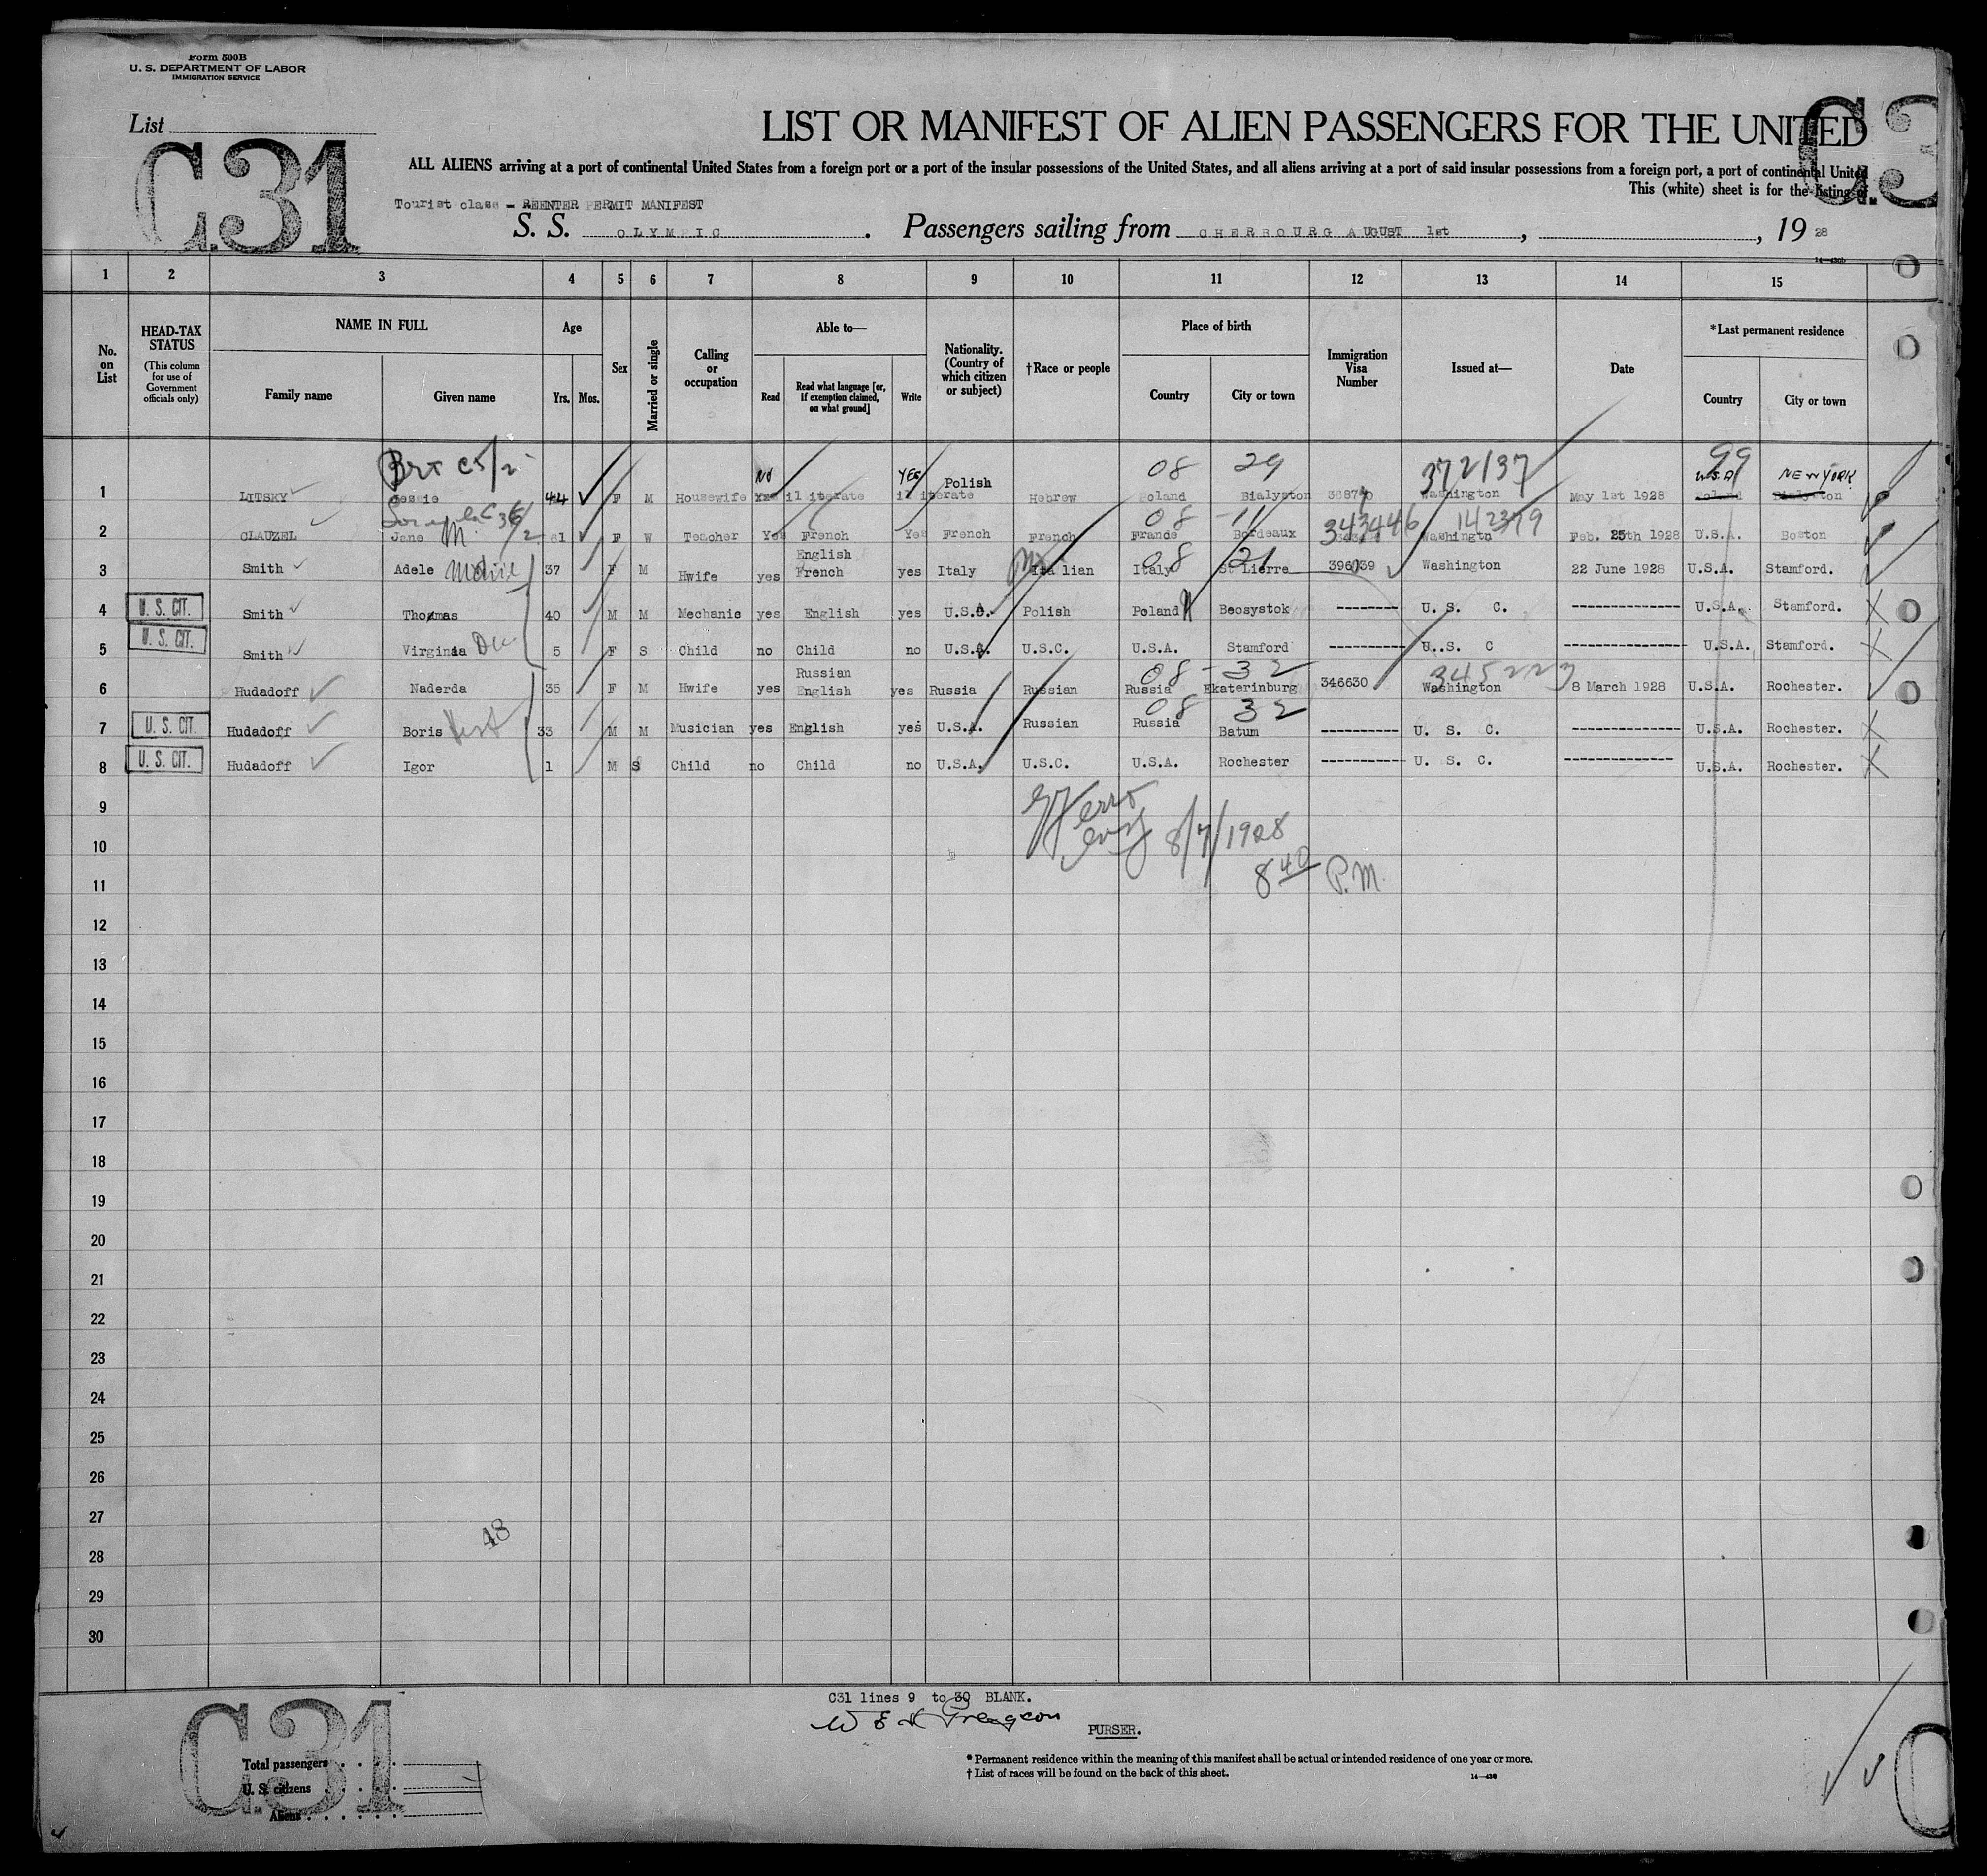 Form 500B
U. S. DEPARTMENT OF LABOR
IMMIGRATION SERVICE
List
C.31
C.3
LIST OR MANIFEST OF ALIEN PASSENGERS FOR THE UNITED
ALL ALIENS arriving at a port of continental United States from a foreign port or a port of the insular possessions of the United States, and all aliens arriving at a port of said insular possessions from a foreign port, a port of continental United
This (white) sheet is for the listing of
Tourist class - REENTER PERMIT MANIFEST
S. S. OLYMPIC . Passengers sailing from CHERBOURG AUGUST 1st , , 19 28
1 2 3 4 5 6 7 8 9 10 11 12 13 14 15
No. on List
HEAD-TAX STATUS
(This column for use of Government officials only)
NAME IN FULL
Family name
Given name
Age
Yrs. Mos.
Sex
Married or single
Calling or occupation
Able to—
Read
Read what language [or, if exemption claimed, on what ground]
Write
Nationality. (Country of which citizen or subject)
†Race or people
Place of birth
Country
City or town
Immigration Visa Number
Issued at—
Date
*Last permanent residence
Country
City or town
08 29 372137 99
No YES Polish W.S.A NEW YORK
1 LITSKY Gessie 44 F M Housewife illiterate illiterate Hebrew Poland Bialyston Washington May 1st 1928 Poland Bialyston
08 - 11 343446 142379
2 CLAUZEL Jane M. 61 F W Teacher Yes French Yes French French France Bordeaux Washington Feb. 25th 1928 U.S.A. Boston
08 21
3 Smith Adele 37 F M Hwife yes English French yes Italy Italian Italy St Pierre 396039 Washington 22 June 1928 U.S.A. Stamford.
4 U. S. CIT. Smith Thomas 40 M M Mechanic yes English yes U.S.A. Polish Poland Beosystok --------- U. S. C. -------------- U.S.A. Stamford.
5 U. S. CIT. Smith Virginia 5 F S Child no Child no U.S.A. U.S.C. U.S.A. Stamford ---------- U..S. C -------------- U.S.A. Stamford.
08 - 32 345223
6 Hudadoff Naderda 35 F M Hwife yes Russian English yes Russia Russian Russia Ekaterinburg 346630 Washington 8 March 1928 U.S.A. Rochester.
08 32
7 U. S. CIT. Hudadoff Boris 33 M M Musician yes English yes U.S.A. Russian Russia Batum ---------- U. S. C. -------------- U.S.A. Rochester.
8 U. S. CIT. Hudadoff Igor 1 M S Child no Child no U.S.A. U.S.C. U.S.A. Rochester ----------- U. S. C. -------------- U.S.A. Rochester.
9
8/7/1928
10
8 40 P.M.
11
12
13
14
15
16
17
18
19
20
21
22
23
24
25
26
27
48
28
29
30
C31 lines 9 to 30 BLANK.
PURSER.
C.31
Total passengers
U. S. citizens
Aliens
* Permanent residence within the meaning of this manifest shall be actual or intended residence of one year or more.
† List of races will be found on the back of this sheet.
14—430